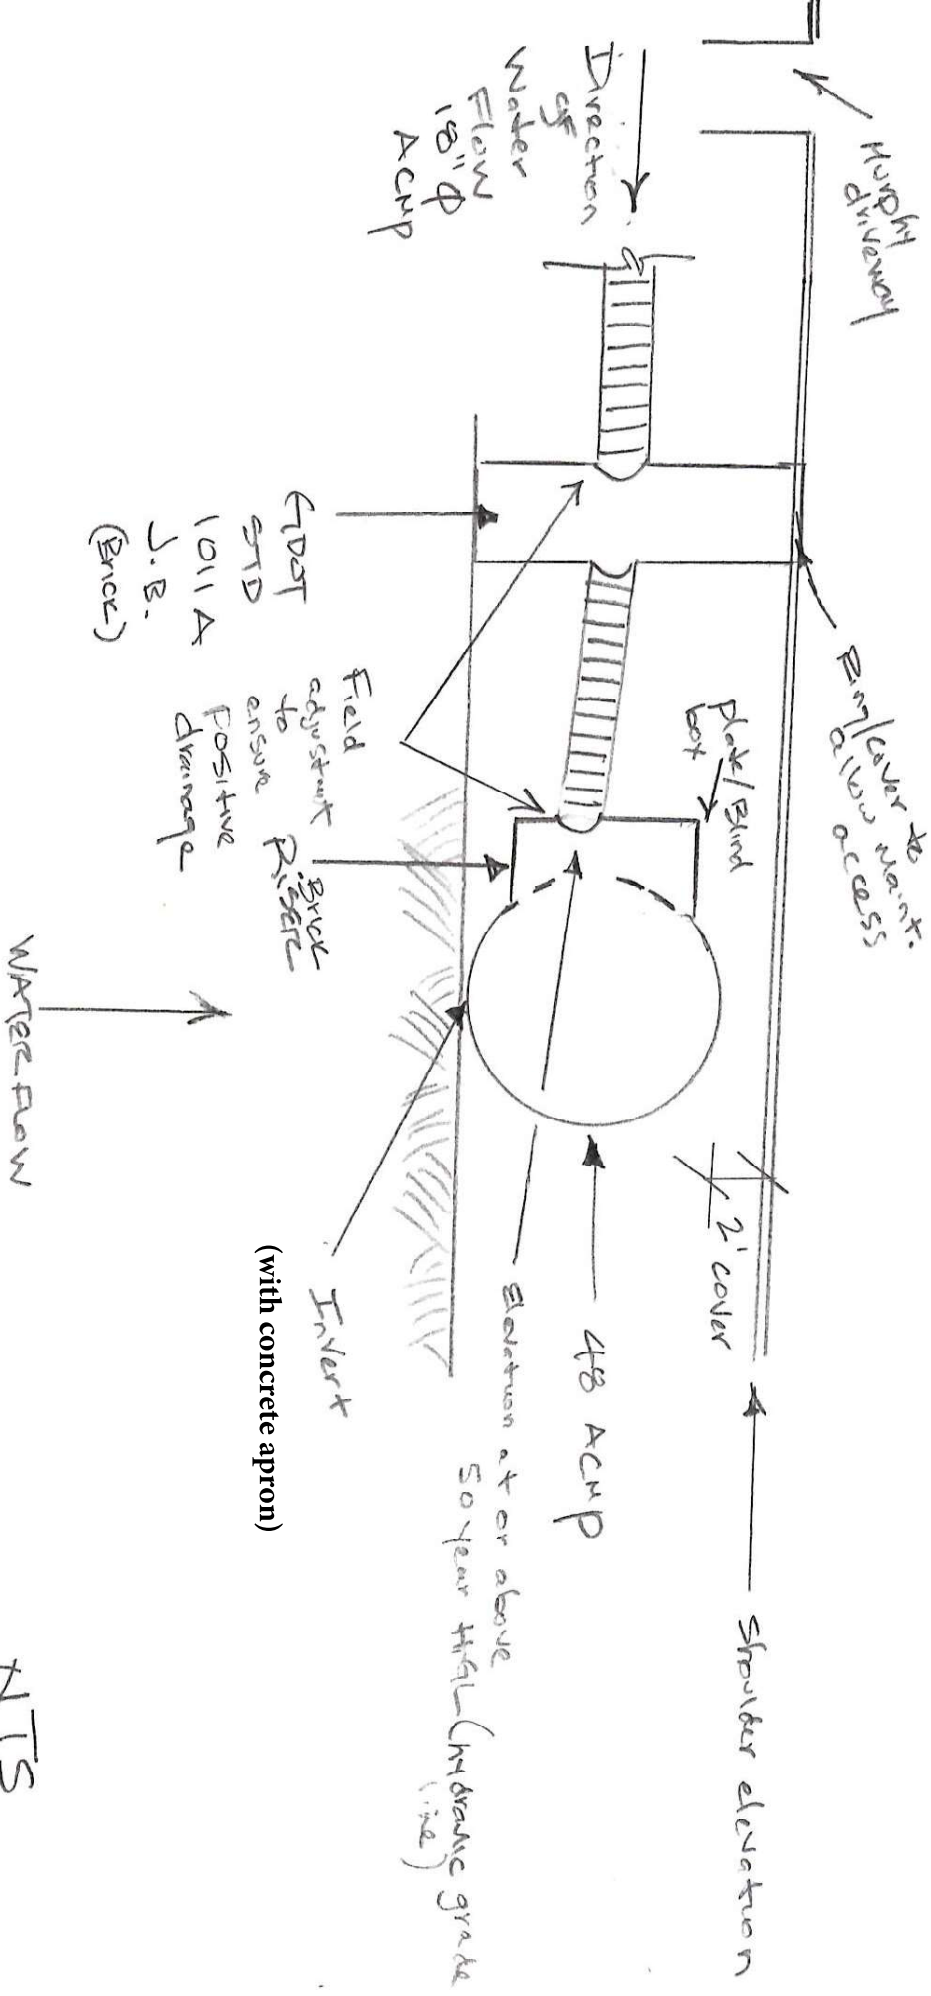 Murphy
driveway
Direction
of
Water
Flow
18" Φ
ACMP
Ring/cover to
allow maint.
access
plate/Blind
box
GDOT
STD
1011 A
J.B.
(Brick)
Field
adjustmt
to
ensure
positive
drainage
Brick
RISER
2' cover
shoulder elevation
48 ACMP
Elevation at or above
50 year HGL (hydraulic grade
line)
Invert
(with concrete apron)
WATER FLOW
NTS